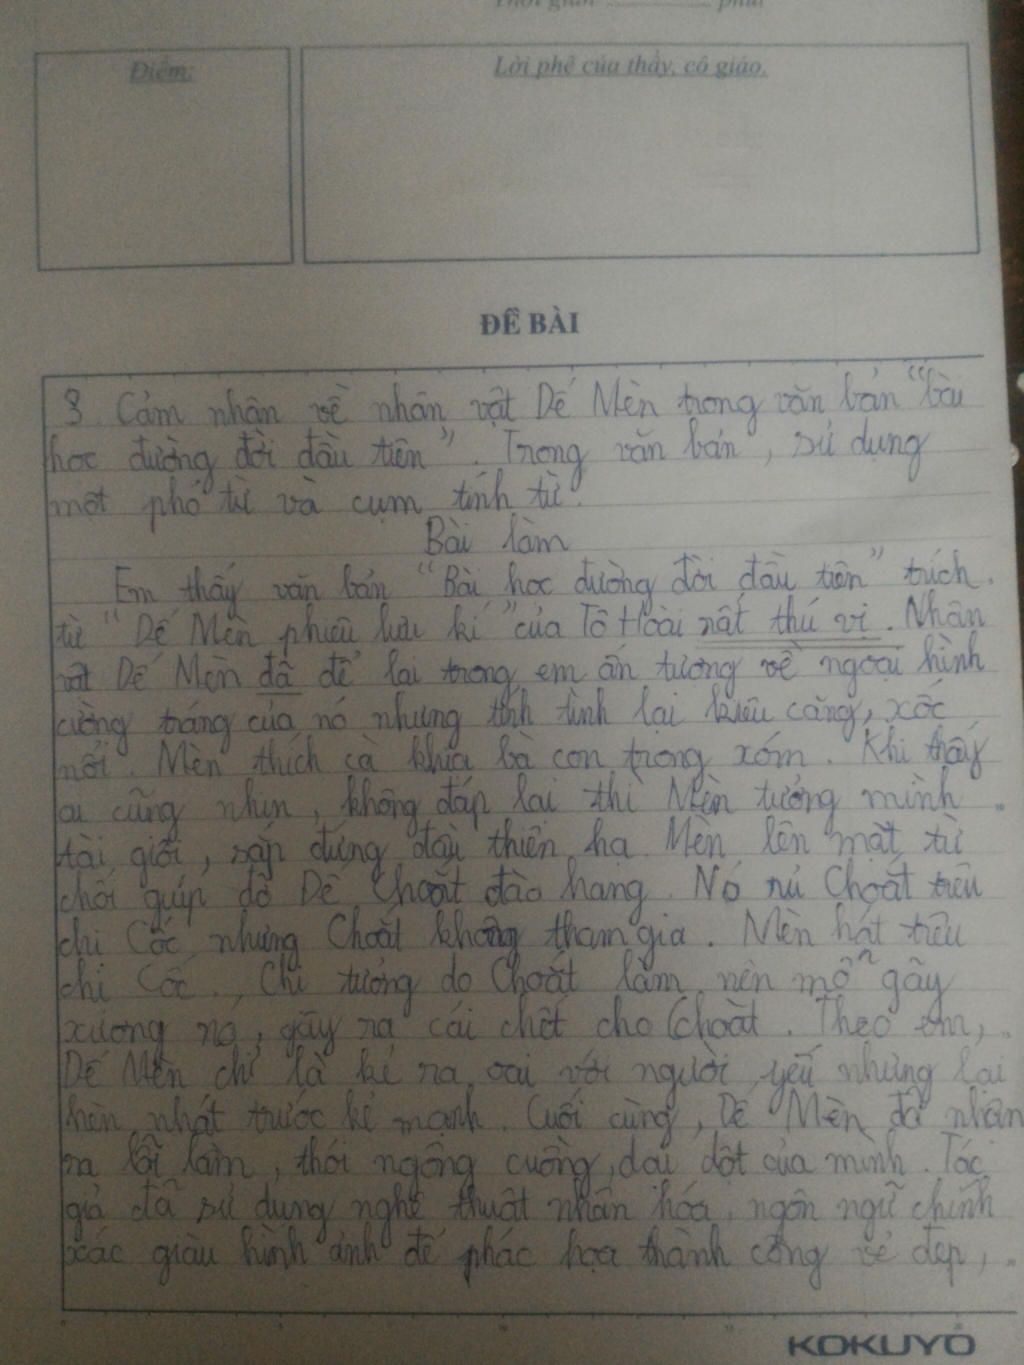 Thời gian ............ phút
Điểm:
Lời phê của thầy, cô giáo.
ĐỀ BÀI
3. Cảm nhận về nhân vật Dế Mèn trong văn bản "bài
học đường đời đầu tiên". Trong văn bản, sử dụng
một phó từ và cụm tính từ.
Bài làm
Em thấy văn bản "Bài học đường đời đầu tiên" trích
từ "Dế Mèn phiêu lưu kí" của Tô Hoài rất thú vị. Nhân
vật Dế Mèn đã để lại trong em ấn tượng về ngoại hình
cường tráng của nó nhưng tính tình lại kiêu căng, xốc
nổi. Mèn thích cà khịa bà con trong xóm. Khi thấy
ai cũng nhịn, không đáp lại thì Mèn tưởng mình
tài giỏi, sắp đứng đầu thiên hạ. Mèn lên mặt từ
chối giúp đỡ Dế Choắt đào hang. Nó rủ Choắt trêu
chị Cốc nhưng Choắt không tham gia. Mèn hát trêu
chị Cốc. Chị tưởng do Choắt làm nên mổ gãy
xương nó, gây ra cái chết cho Choắt. Theo em,
Dế Mèn chỉ là kẻ ra oai với người yếu nhưng lại
hèn nhát trước kẻ mạnh. Cuối cùng, Dế Mèn đã nhận
ra lỗi lầm, thói ngông cuồng, dại dột của mình. Tác
giả đã sử dụng nghệ thuật nhân hóa, ngôn ngữ chính
xác giàu hình ảnh để phác họa thành công vẻ đẹp,
KOKUYO